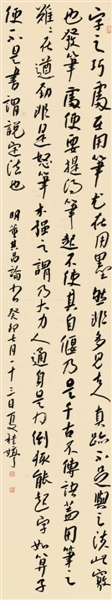 字之巧處在用筆尤在用墨然非多見古人真跡不足與語此竅
也發筆處便要提得筆起不使其自偃乃是千古不傳語蓋用筆之
難々在遒勁非是怒筆木強之謂乃大力人通身是力倒輒能起字如算子
便不是書謂說定法也 明董其昌論書 癸卯七月十三日夏